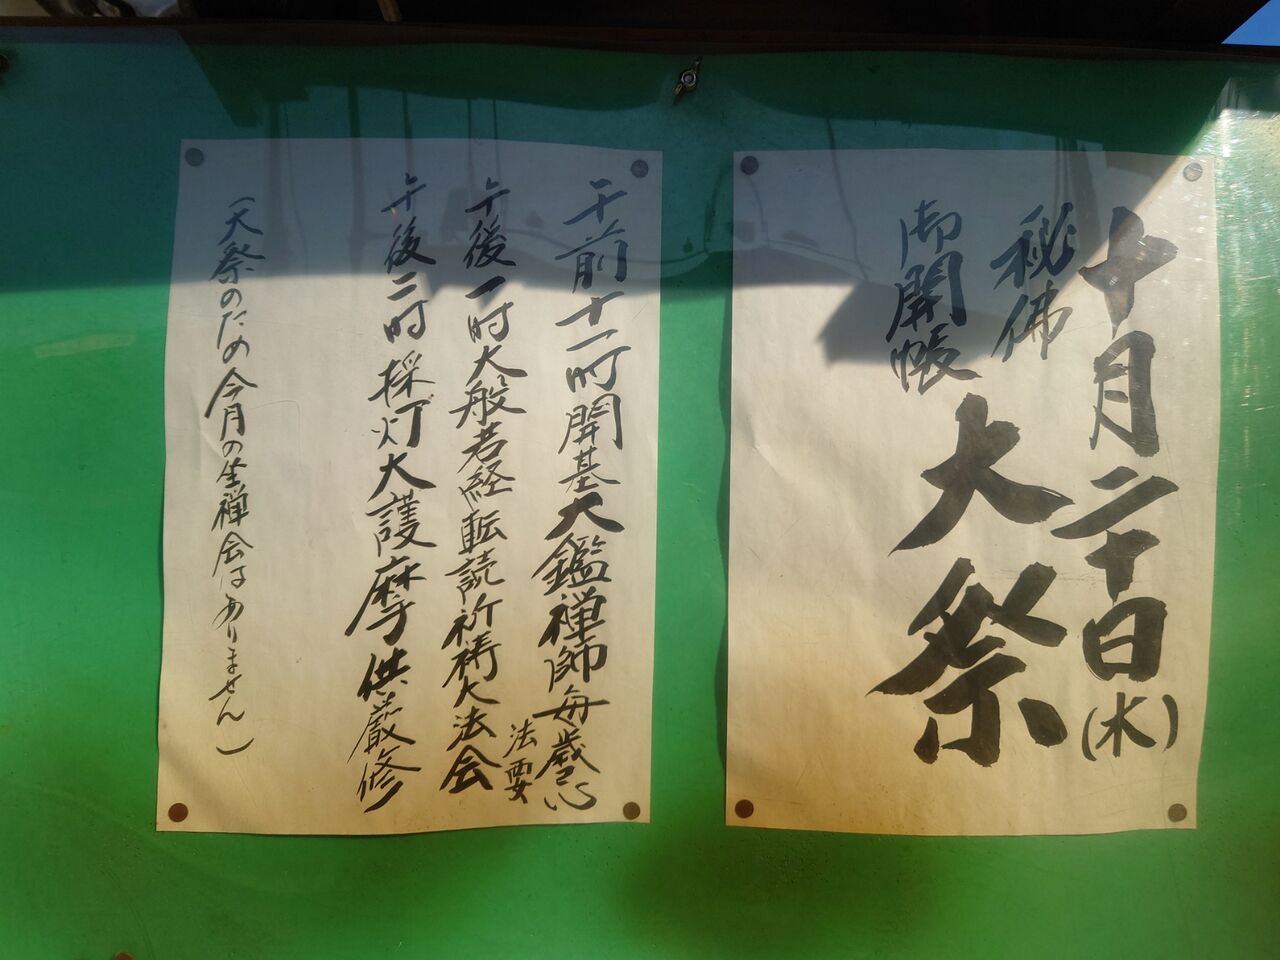 十月二十日(水)
秘佛
御開帳
大祭
午前十一時開基大鑑禅師毎歳忌
法要
午後一時大般若経転読祈祷大法会
午後二時採灯大護摩供厳修
(大祭のため今月の坐禅会はありません)